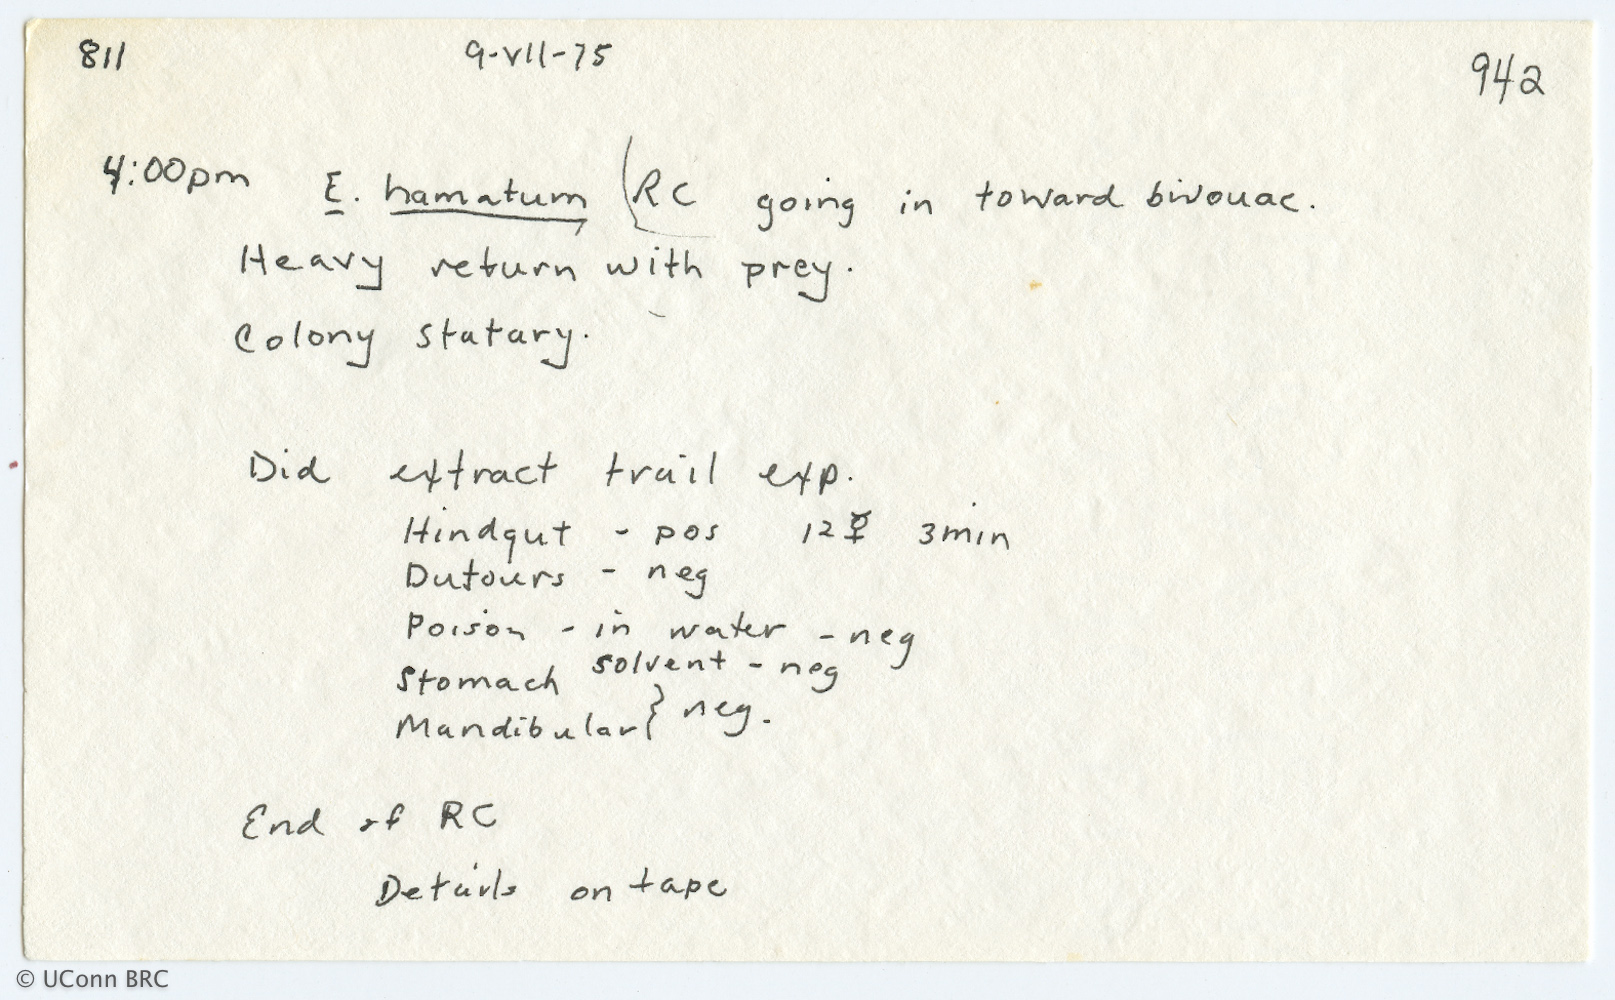 811 9-VII-75 942
4:00pm E. hamatum, (RC going in toward bivouac.
Heavy return with prey.
Colony statary.
Did extract trail exp.
Hindgut - pos 12 ☿ 3min
Dutours - neg
Poison - in water - neg
solvent - neg
Stomach
Mandibular } neg.
End of RC
Details on tape
© UConn BRC